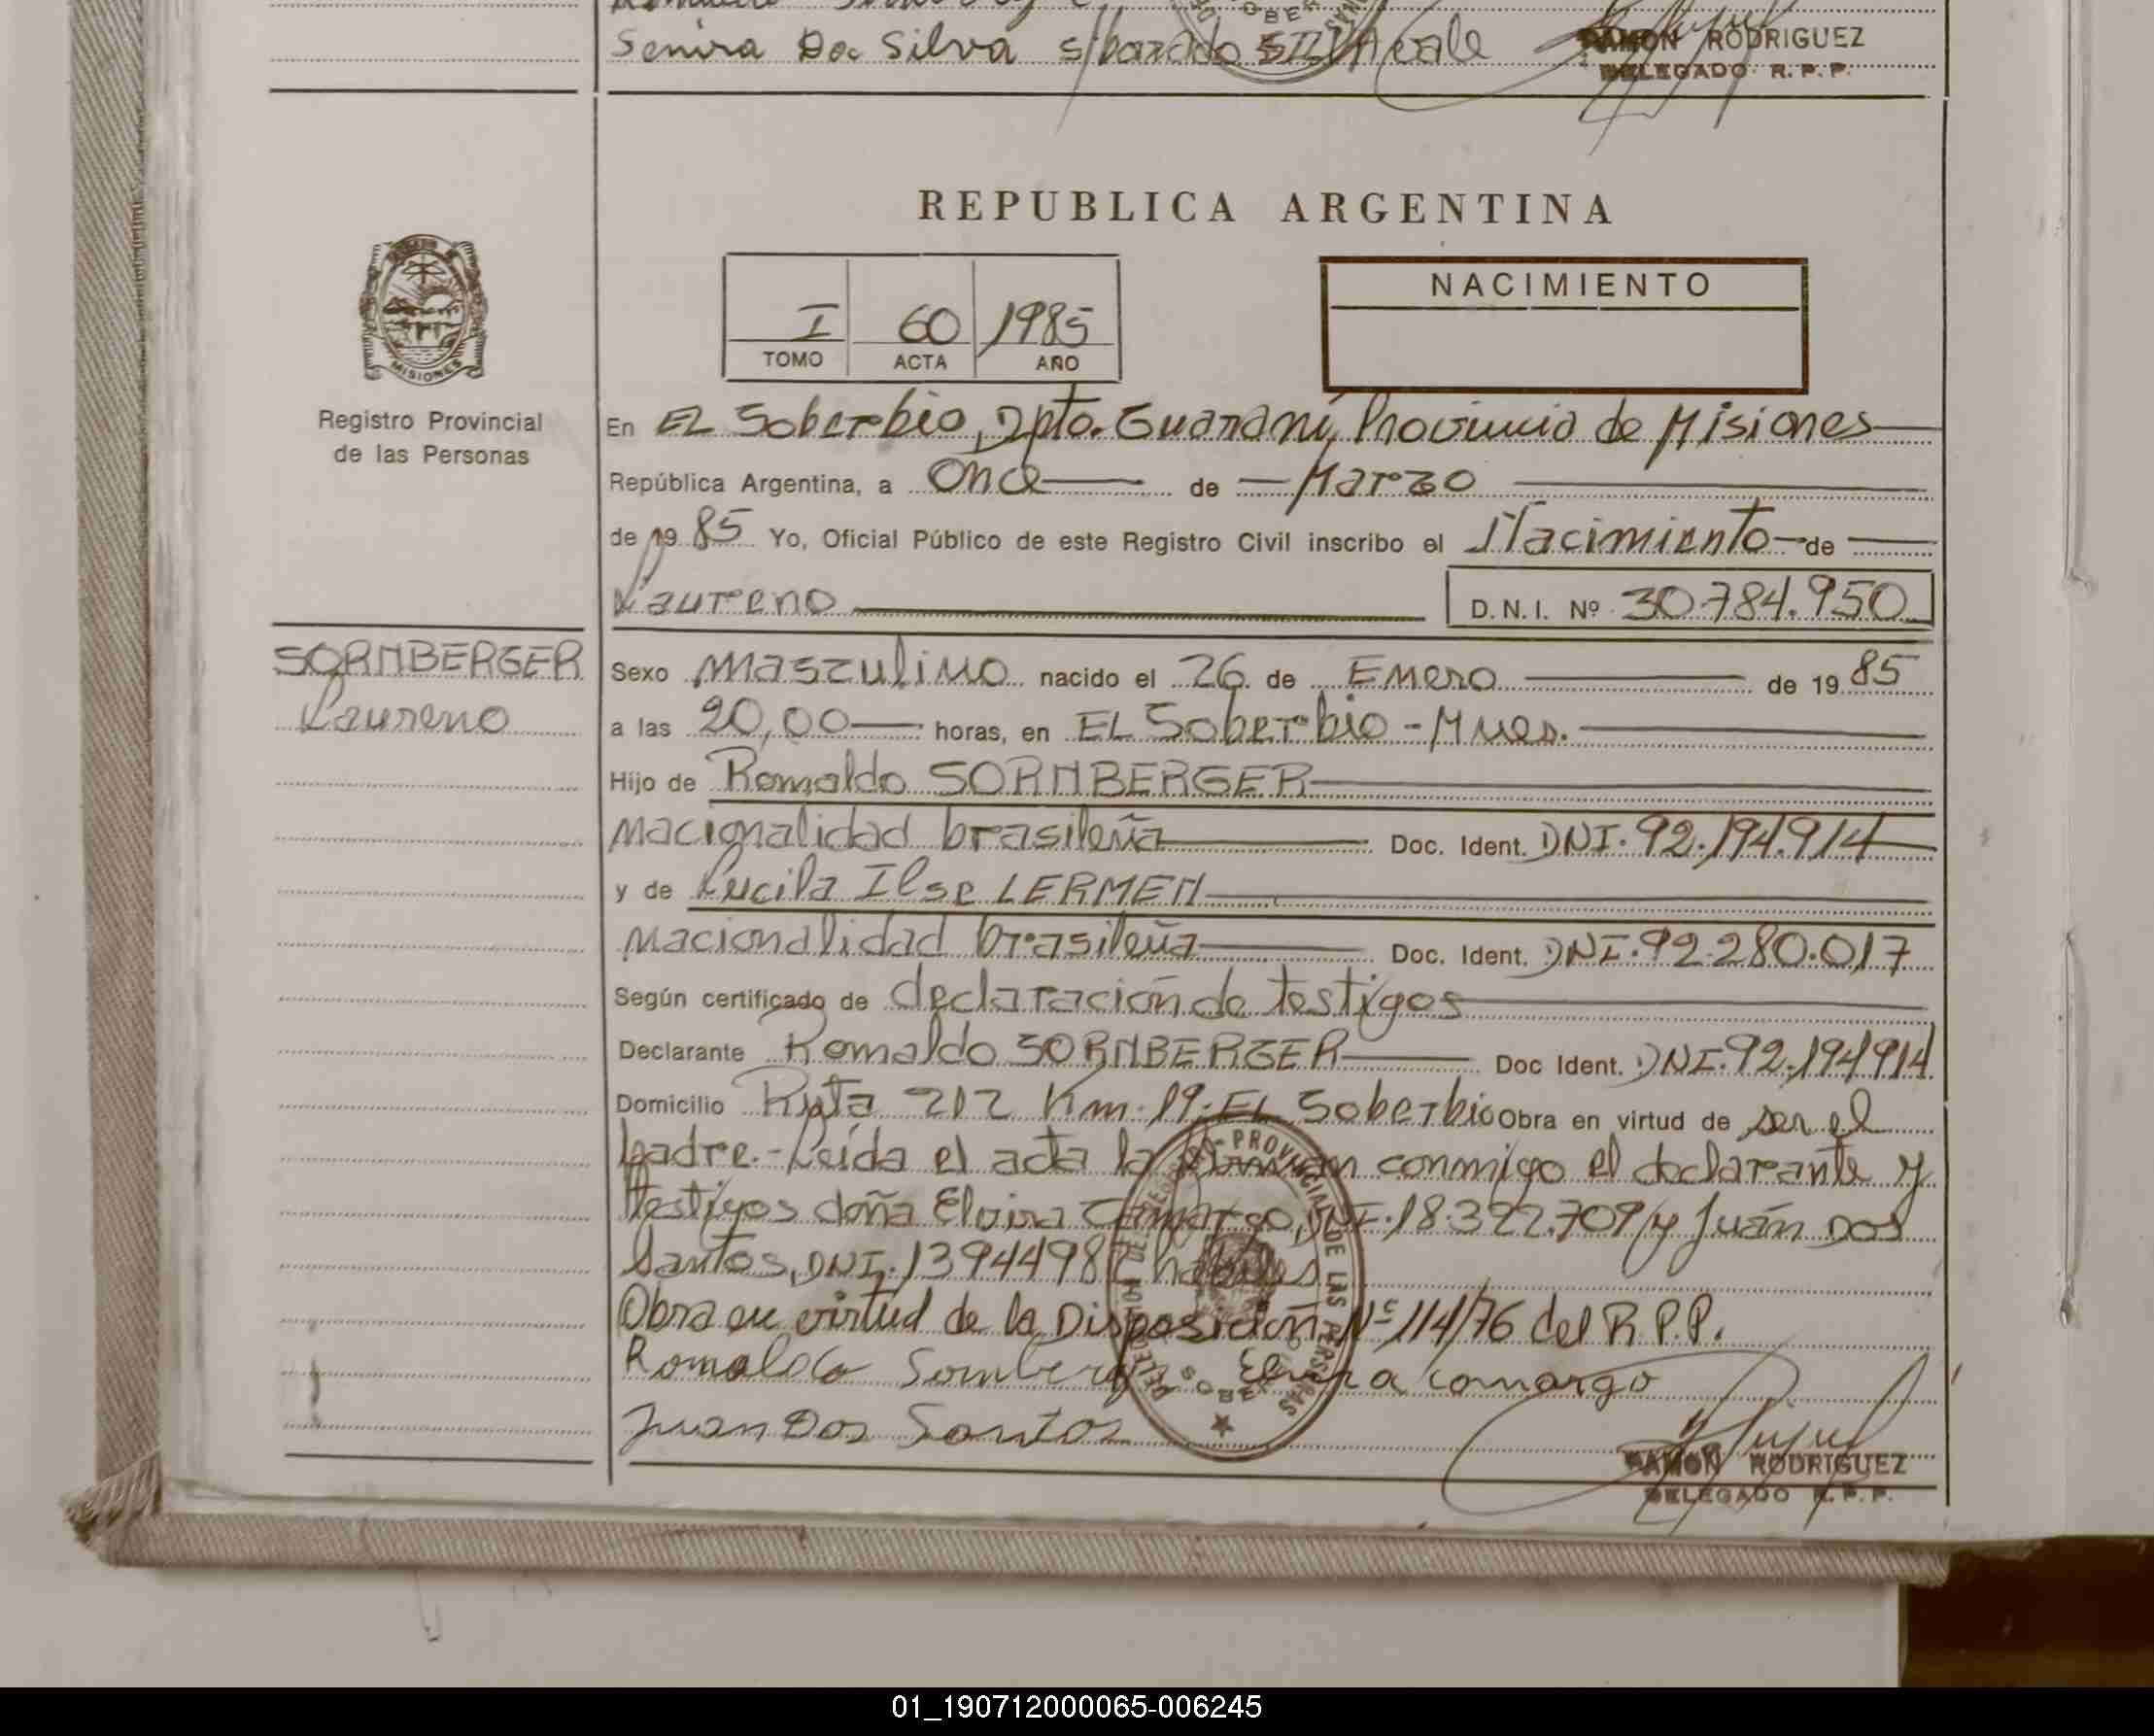 Senira Da Silva s/borrado SILVA vale
RAMON RODRIGUEZ
DELEGADO R.P.P.
REPUBLICA ARGENTINA
NACIMIENTO
I 60 1985
TOMO ACTA AÑO
MISIONES
Registro Provincial
de las Personas
En EL Soberbio, Dpto. Guaraní, Provincia de Misiones
República Argentina, a Once de Marzo
de 19 85 Yo, Oficial Público de este Registro Civil inscribo el Nacimiento de
Laureno D.N.I. Nº 30.784.950
SORNBERGER
Laureno
Sexo Masculino nacido el 26 de Enero de 19 85
a las 20,00 horas, en EL Soberbio - Mnes.
Hijo de Romaldo SORNBERGER
nacionalidad brasileña Doc. Ident. DNI. 92.194.914
y de Lucila Ilse LERMEN
nacionalidad brasileña Doc. Ident. DNI. 92.280.017
Según certificado de declaración de testigos
Declarante Romaldo SORNBERGER Doc Ident. DNI. 92.194914
Domicilio Ruta 212 Km. 19. EL Soberbio Obra en virtud de ser el
padre.- Leída el acta la firman conmigo el declarante y
testigos doña Elvira Camargo, DNI. 18.322.709 y Juán Dos
Santos, DNI. 13944987 hábiles
Obra en virtud de la Disposición Nº 114/76 del R.P.P.
Romaldo Sornberger Elvira camargo
Juan Dos Santos
RAMON RODRIGUEZ
DELEGADO R.P.P.
01_190712000065-006245